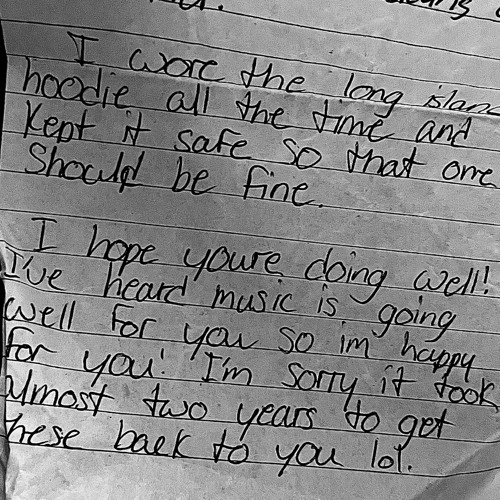 I wore the long island
hoodie all the time and
kept it safe so that one
should be fine.
I hope youre doing well!
I've heard music is going
well for you so im happy
for you! I'm sorry it took
almost two years to get
these back to you lol.